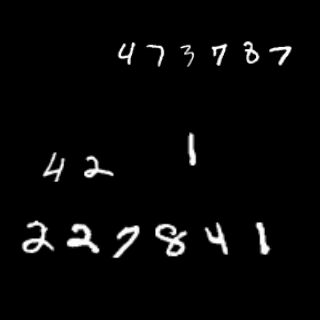 473787
42 1
227841